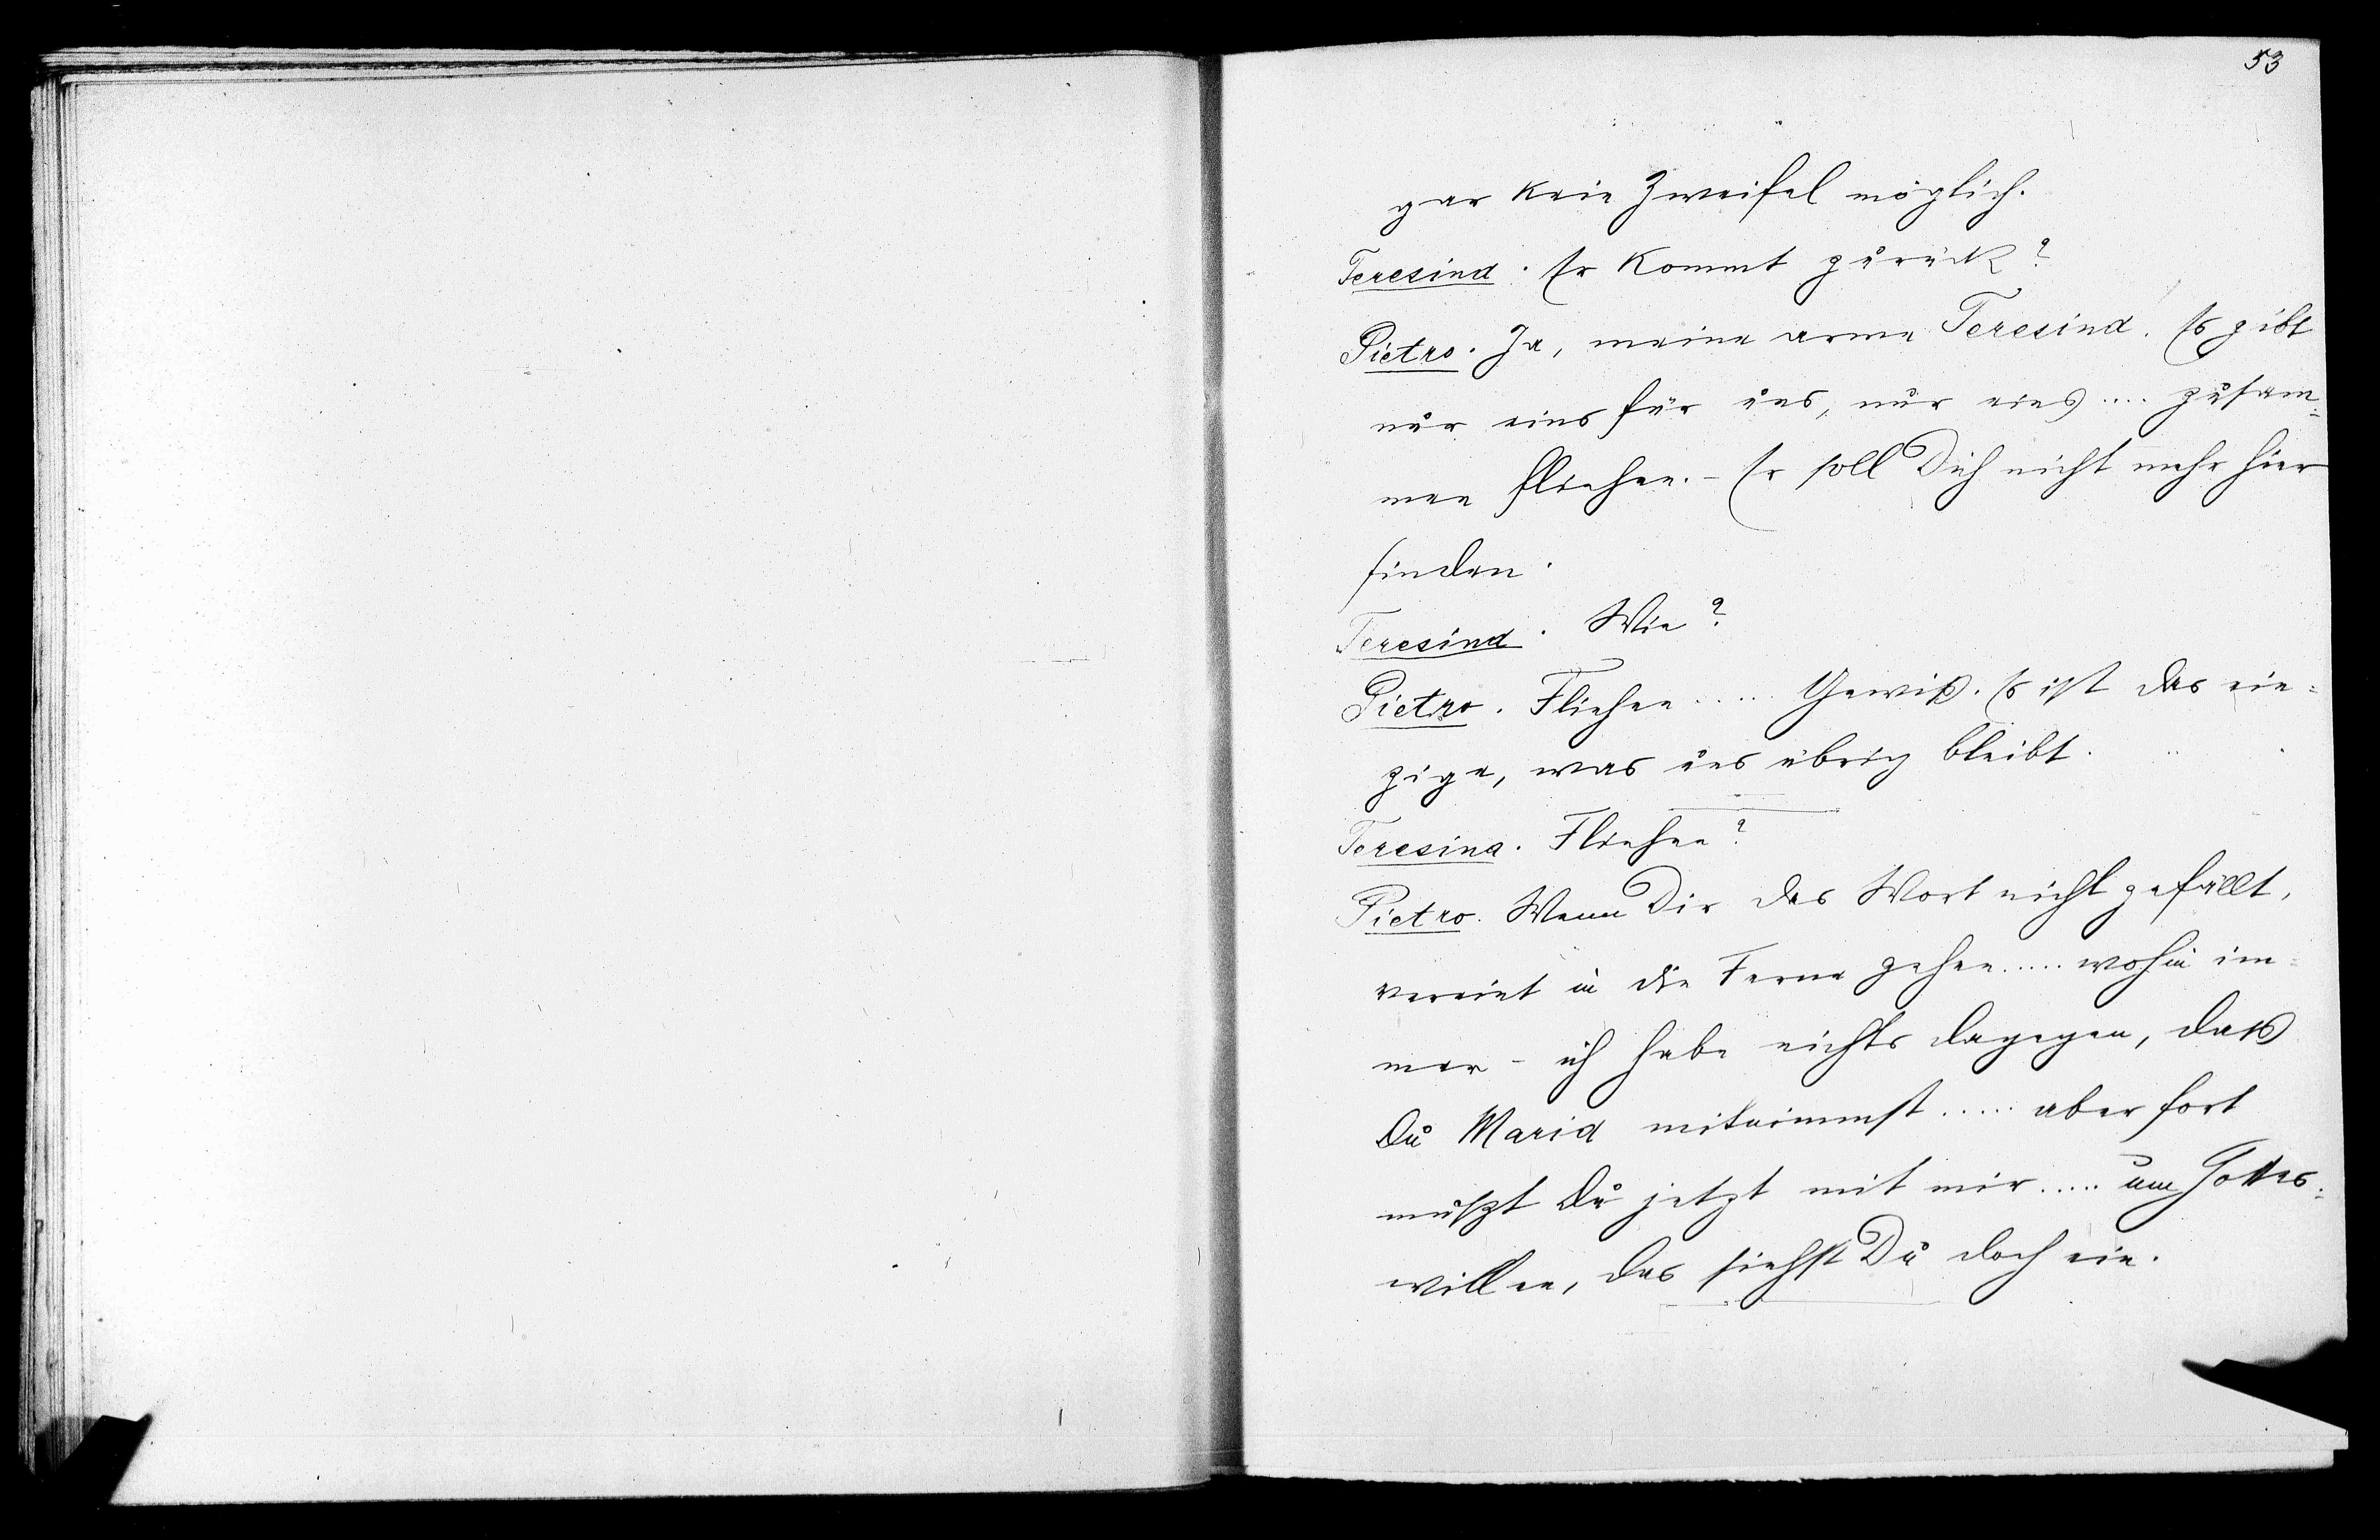 53
gar kein Zweifel möglich.
Teresina. Er kommt zurück?
Pietro. Ja, meine arme Teresina. Es gibt
nur eins für uns, nur eins .... zusam-
men fliehen. – Er soll Dich nicht mehr hier
finden.
Teresina. Wie?
Pietro. Fliehen ..... Gewiß. Es ist das ein-
zige, was uns übrig bleibt.
Teresina. Fliehen?
Pietro. Wenn Dir das Wort nicht gefällt,
vereint in die Ferne gehen ..... wohin im-
mer – ich habe nichts dagegen, daß
Du Maria mitnimmst ..... aber fort
mußt Du jetzt mit mir ..... um Gottes-
willen, das siehst Du doch ein.